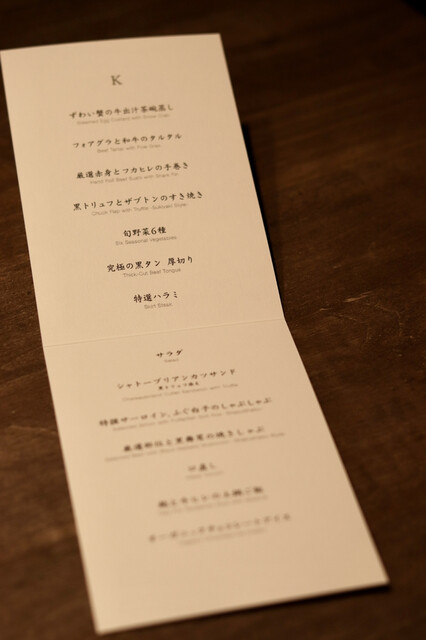 K
ずわい蟹の牛出汁茶碗蒸し
Steamed Egg Custard with Snow Crab
フォアグラと和牛のタルタル
Beef Tartar with Foie Gras
厳選赤身とフカヒレの手巻き
Hand Roll Beef Sushi with Shark Fin
黒トリュフとザブトンのすき焼き
Chuck Flap with Truffle -Sukiyaki Style-
旬野菜6種
Six Seasonal Vegetables
究極の黒タン 厚切り
Thick-Cut Beef Tongue
特選ハラミ
Skirt Steak
サラダ
Salad
シャトーブリアンカツサンド
黒トリュフ添え
Chateaubriand Cutlet Sandwich with Truffle
特撰サーロイン、ふぐ白子のしゃぶしゃぶ
口直し